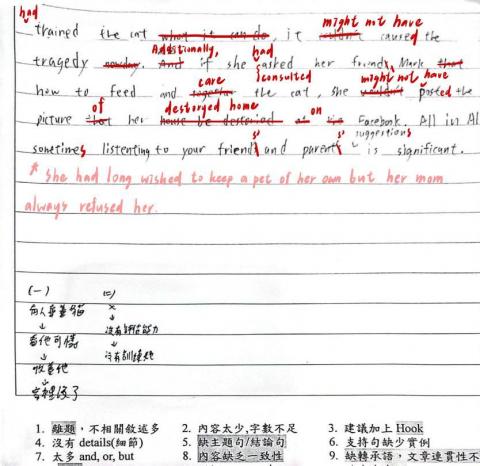 had might not have
trained the cat what it can do, it couldn't caused the
Additionally, had
tragedy nowday. And if she asked her friend, Mark that
consulted
care might not have
how to feed and together the cat, she wouldn't posted the
of destoryed home on
picture that her house be destoried at his Facebook. All in Al
suggestions
sometimes listenting to your friends' and parents' is significant.
* She had long wished to keep a pet of her own but her mom
always refused her.
(一) (二)
×
↓ ↓
看他可憐 沒有評估能力
↓ ↓
收養他 沒有訓練她
↓
家裡毀了
1. 離題，不相關敘述多 2. 內容太少,字數不足 3. 建議加上 Hook
4. 沒有 details(細節) 5. 缺主題句/結論句 6. 支持句缺少實例
7. 太多 and, or, but 8. 內容缺乏一致性 9. 缺轉承語，文章連貫性不